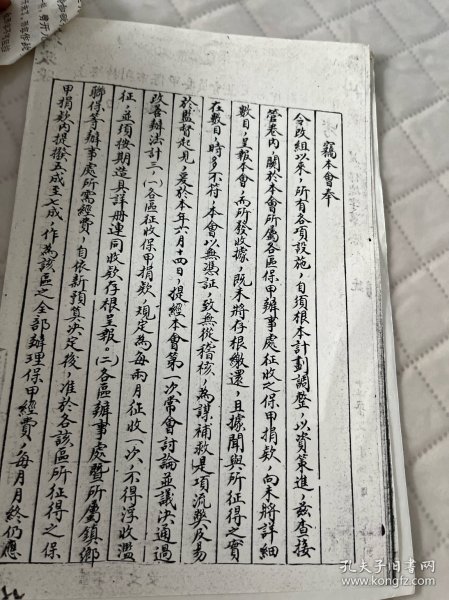 竊本會奉
令改組以来，所有各項設施，自須根本計劃調整，以資策進，茲查接
管卷内，關於本會所屬各區保甲辦事處征收之保甲捐款，向未將詳細
數目，呈報本會，而所發收據，既未將存根繳還，且據聞與所征得之實
在數目，時多不符，本會以無憑証，致無從稽核，為謀補救是項流弊及易
於監督起見，爰於本年六月十四日，提經本會第一次常會討論並議決通過
改善辦法計二（一）各區征收保甲捐款，規定為每兩月征收一次，不得浮收濫
征，並須按期造具詳冊連同收款存根呈報。（二）各區辦事處暨所屬鎮鄉
聯保等辦事處所需經費，自依新預算決定後，准於各該區所征得之保
甲捐款内提撥五成至七成，作為該區之全部辦理保甲經費，每月月終仍應
孔夫子旧书网